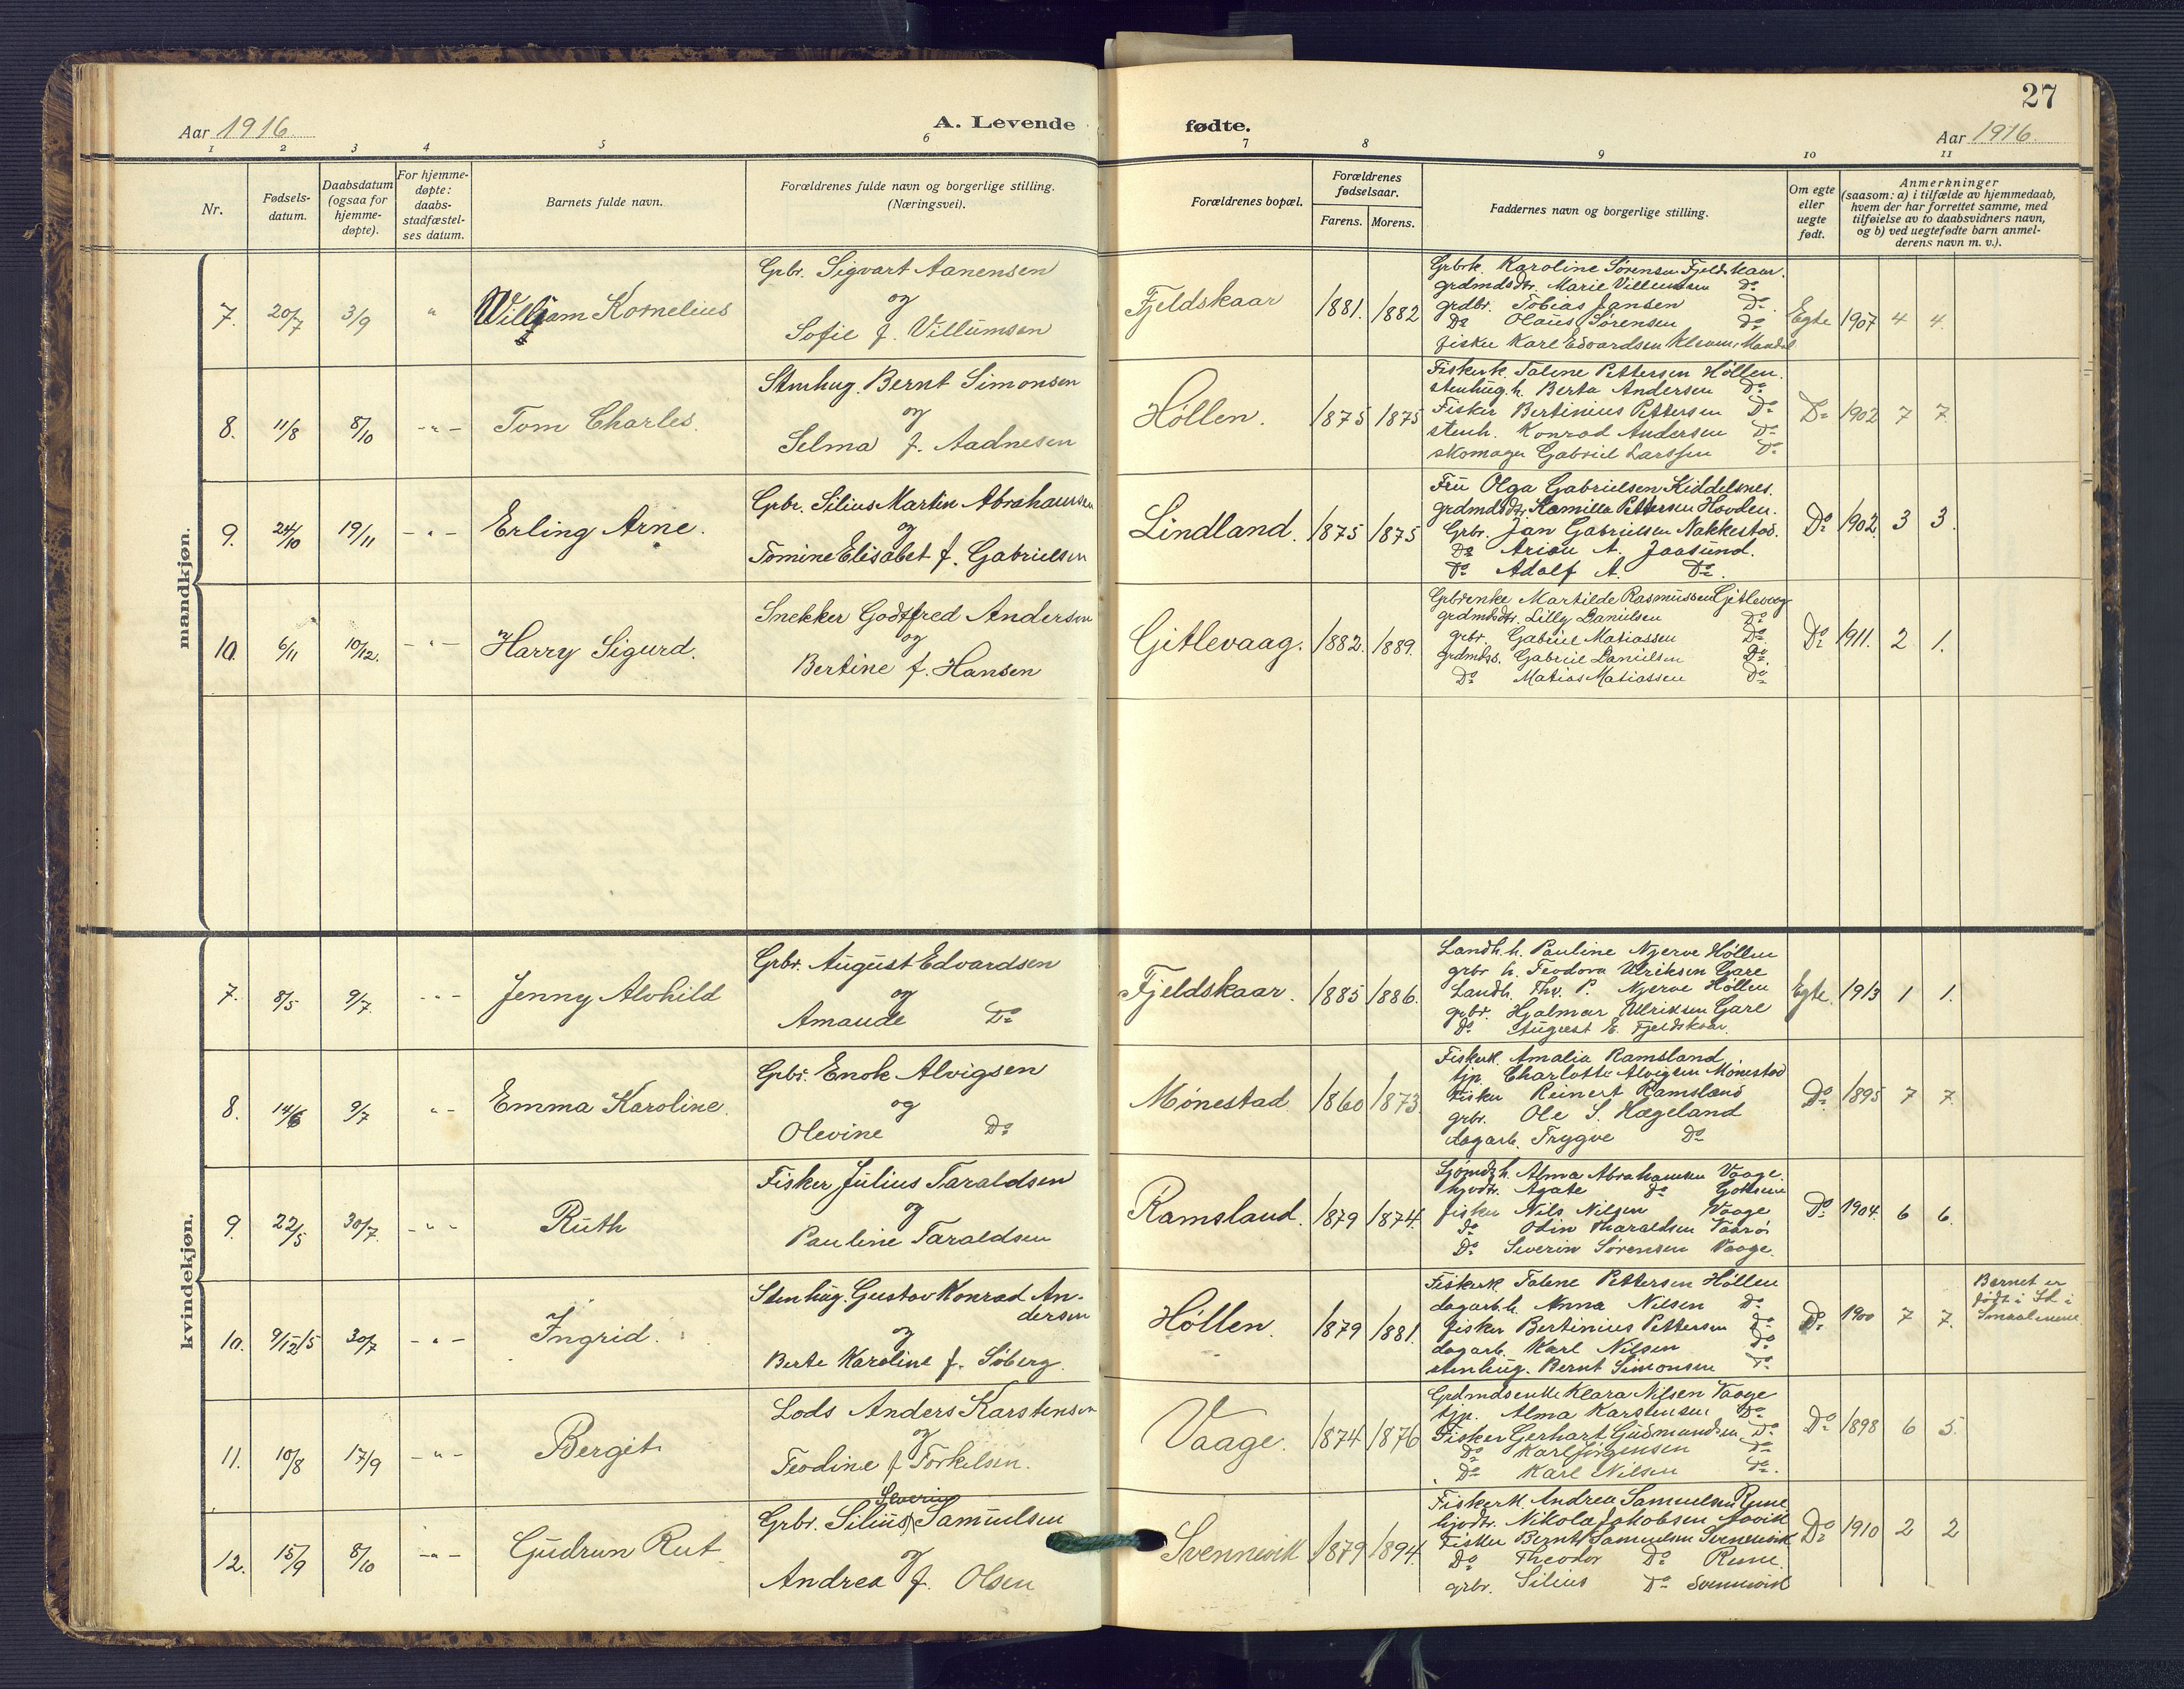 27
Aar 1916
A. Levende fødte.
Aar 1916
1 2 3 4 5 6 7 8 9 10 11
Nr.
Fødsels-
datum.
Daabsdatum
(ogsaa for
hjemme-
døpte).
For hjemme-
døpte:
daabs-
stadfæstel-
ses datum.
Barnets fulde navn.
Forældrenes fulde navn og borgerlige stilling.
(Næringsvei).
Forældrenes bopæl.
Forældrenes
fødselsaar.
Farens. Morens.
Faddernes navn og borgerlige stilling.
Om egte
eller
uegte
født.
Anmerkninger
(saasom: a) i tilfælde av hjemmedaab,
hvem der har forrettet samme, med
tilføielse av to daabsvidners navn,
og b) ved uegtefødte barn anmel-
derens navn m. v.).
mandkjøn.
7. 20/7 3/9 " William Kornelius
Grbr. Sigvart Aanensen
og
Sofie f. Villumsen
Fjeldskaar 1881. 1882
Grbrk. Karoline Sørensen Fjeldskaar.
grdmdsdtr. Marie Villumsen Do
grdbr. Tobias Jansen Do
Do Olaus Sørensen Do
fisker Karl Edvardsen Kleven, Mandal
Egte 1907 4 4.
8. 11/8 8/10 -"- Tom Charles.
Stenhug. Bernt Simonsen
og
Selma f. Aadnesen
Høllen. 1875 1875
Fiskerk. Taline Pettersen Høllen.
stenhug.h. Berta Andersen Do
Fisker Bertinius Pettersen Do
stenh. Konrad Andersen Do
skomager Gabriel Larssen Do
Do 1902 7 7.
9. 24/10 19/11 -"- Erling Arne.
Grbr. Silius Martin Abrahamsen
og
Tomine Elisabet f. Gabrielsen
Lindland. 1875 1875
Fru Olga Gabrielsen Kiddelsnes.
grdmdsdtr. Kamilla Pettersen Hovden.
Grbr. Jan Gabrielsen Nakkestad.
Do A. Jaasund.
Do Adolf A. Do.
Do 1902. 3 3.
10. 6/11 10/12. -"- Harry Sigurd.
Snekker Godtfred Andersen
og
Bertine f. Hansen
Gitlevaag. 1882. 1889.
Grbrenke Martilde Rasmussen Gitlevaag
grdmdsdtr. Lilly Danielsen Do
grbr. Gabriel Matiassen Do
grdmdss. Gabriel Danielsen Do
Do Matias Matiassen Do
Do 1911. 2 1.
kvindekjøn.
7. 8/5 9/7. -"- Jenny Alvhild
Grbr. August Edvardsen
og
Amande Do
Fjeldskaar. 1885 1886.
Landh.h. Pauline Njerve Høllen
grbr h. Teodora Ulriksen Gare
Landh. Thv. P. Njerve Høllen
grbr. Hjalmar Ulriksen Gare
Do August E. Fjeldskaar.
Egte. 1913 1 1.
8. 14/6 9/7 "- Emma Karoline.
Grbr. Enok Alvigsen
og
Olevine Do
Mønestad 1860 1873.
Fiskerk. Amalia Ramsland
tjp. Charlotte Alvigsen Mønestad
Fisker Reinert Ramsland
grbr. Ole S. Hægeland
dagarb. Trygve Do
Do 1895 7 7.
9. 22/5 30/7. -"- Ruth
Fisker Julius Taraldsen
og
Pauline Taraldsen
Ramsland. 1879 1874.
Sjømdsh. Alma Abrahamsen Vaage.
Agate Do
fisker Nils Nilsen Vaage
Do Odin Tharaldsen
Do Severin Sørensen Vaage.
Do 1904. 6 6.
10. 9/12 15 30/7 -"- Ingrid.
Stenhug. Gustav Konrad An-
dersen
og
Berte Karoline f. Søberg.
Høllen. 1879 1881.
Fiskerk Talene Pettersen Høllen
dagarb.h. Anna Nilsen Do
fisker Bertinius Pettersen Do
dagarb. Karl Nilsen Do
stenhug. Bernt Simonsen Do
Do 1900 7 7.
Barnet er
født i
Smaalenene
11. 10/8 17/9 -"- Bergit
Lods Anders Karstensen
og
Teodine f Torkelsen.
Vaage. 1874 1876
Grdmdsenke Klara Nilsen Vaage
tjp. Alma Karstensen Do
Fisker Gerhart Gudmundsen Do
Do Karl Jørgensen Do
Do Karl Nilsen Do.
Do 1898 6 5.
12. 15/9 8/10 -"- Gudrun Rut
Severin
Grbr. Silius Samuelsen
og
Andrea f. Olsen
Svennevik 1879 1894.
Fiskerk. Andrea Samuelsen Rune.
Nikola Jakobsen Aavik
Fisker Bernt Samuelsen Svennevik
Do Theodor Do Rune.
grbr. Silius Do Svennevik
Do 1910 2 2